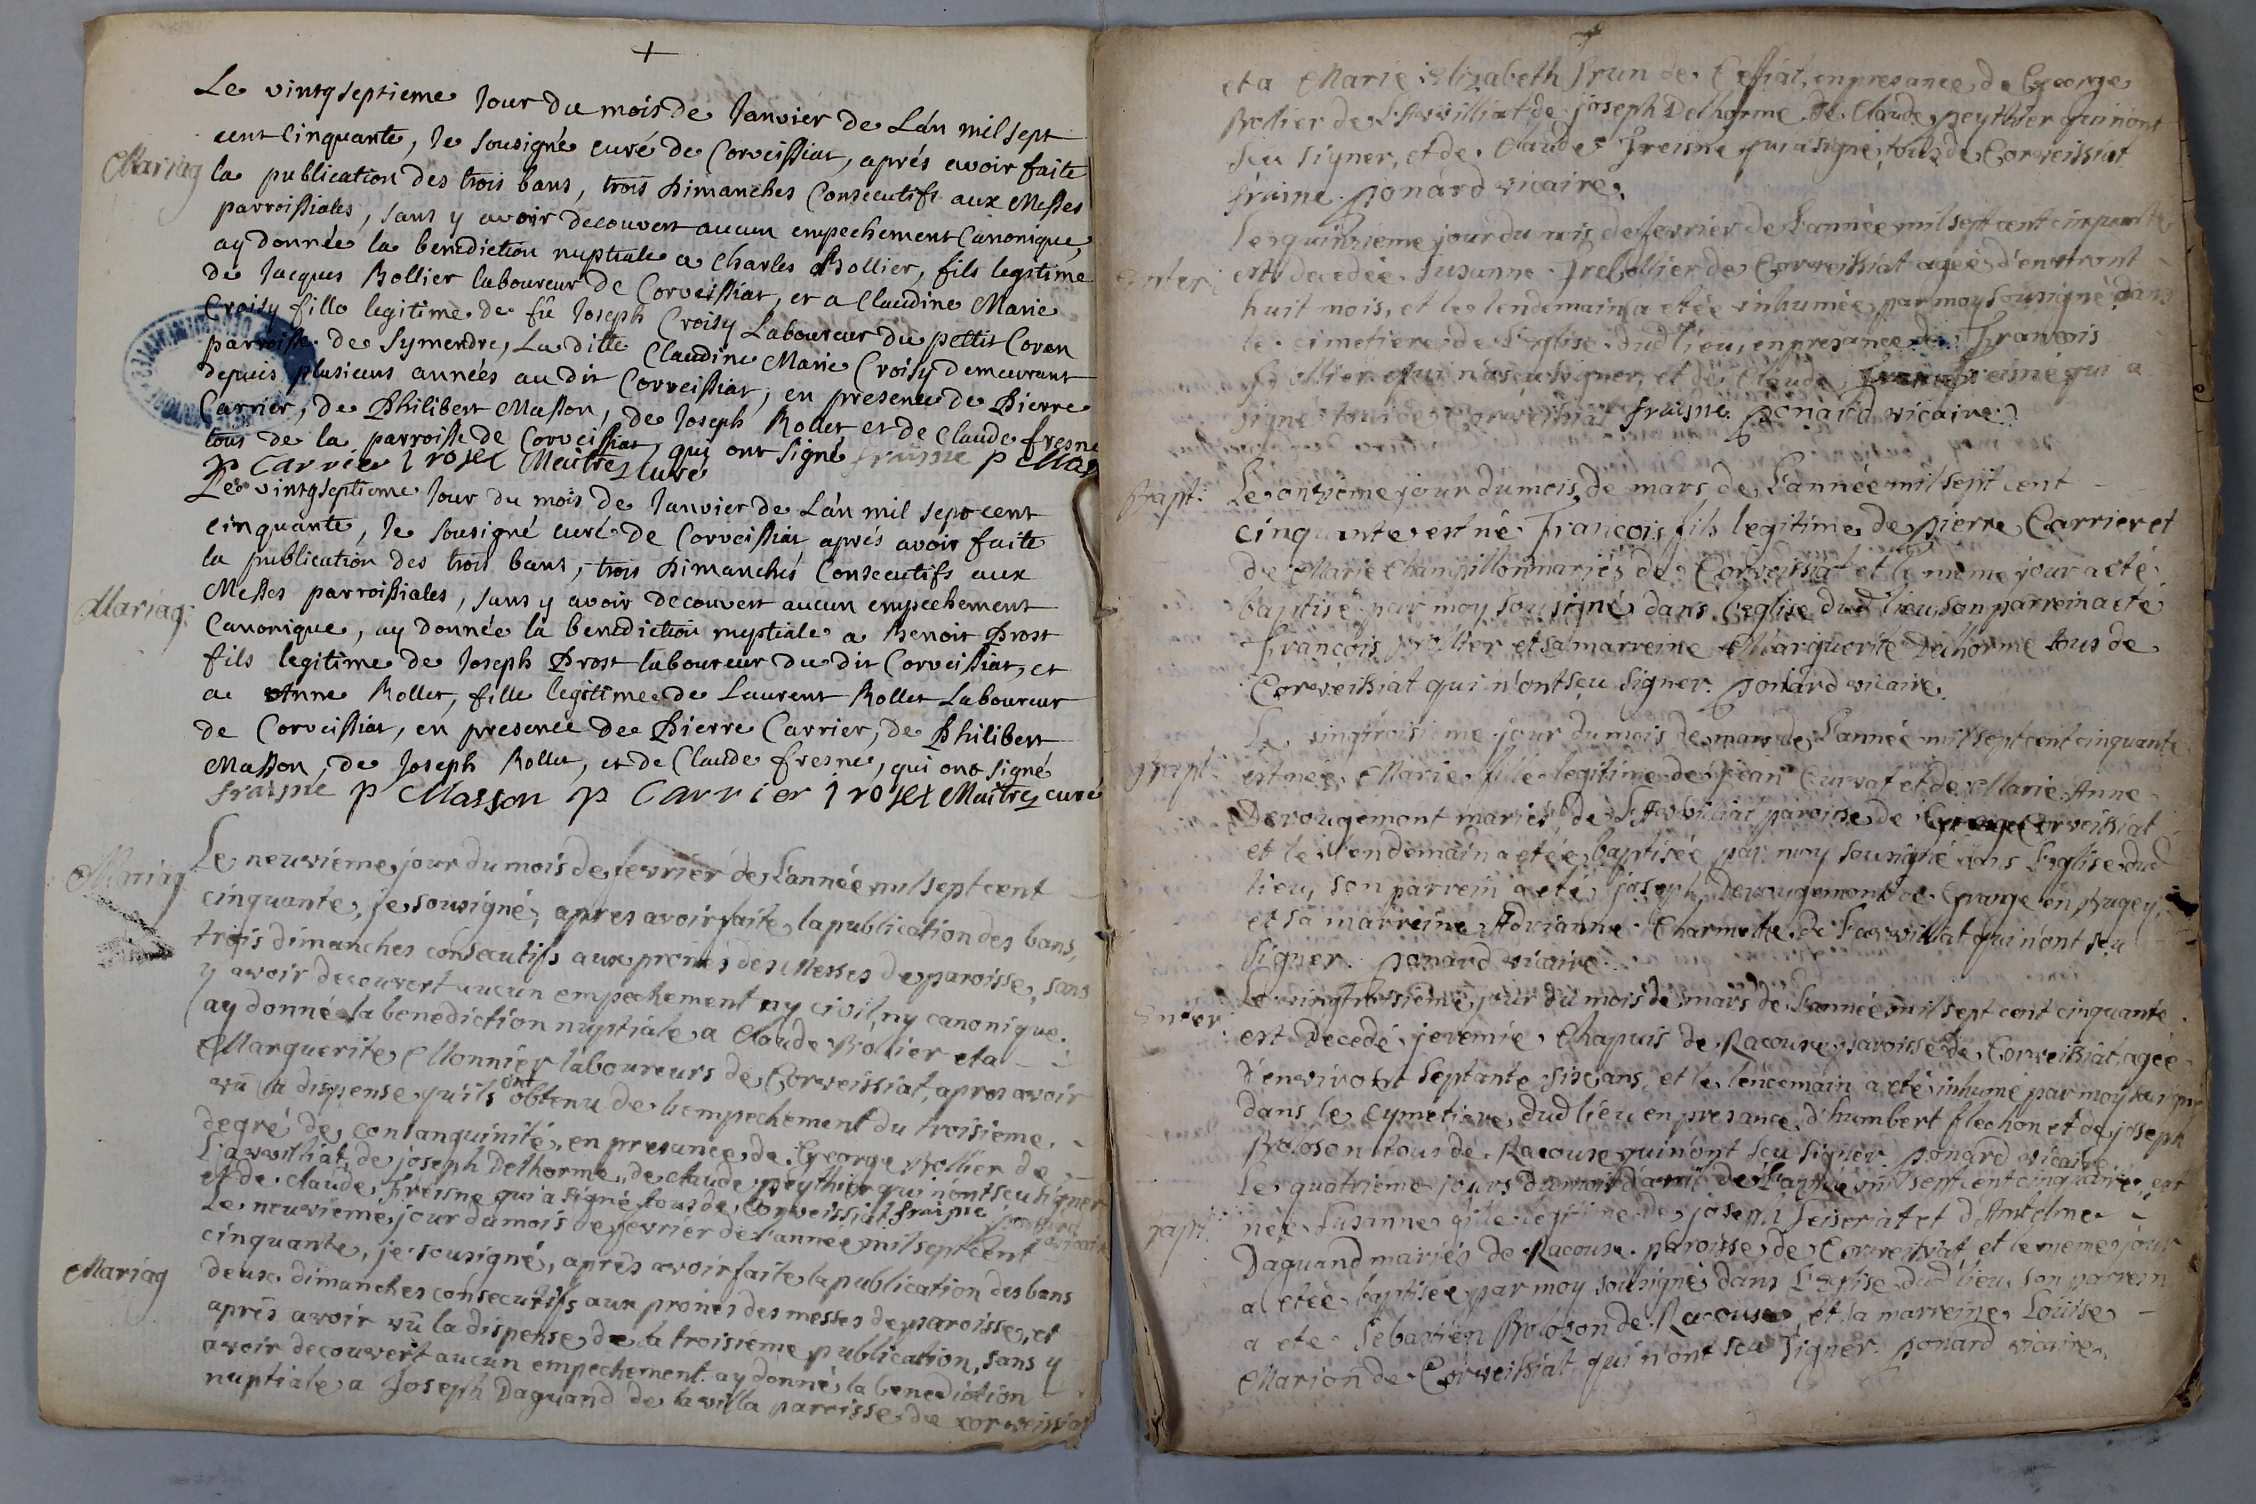 Le vintgseptieme Jour du mois de Janvier de Lán mil sept
cent Cinquante, Je Sousigné curé de Corveissiat, aprés avoir faite
Mariag
la publication des trois bans, trois Dimanches Consecutifs aux Messes
parroissiales, sans y avoir decouvert aucun empechement Canonique,
ay donnée la benediction nuptiale a Charles Bollier, fils legitime
de Jacques Bollier laboureur de Corveissiat, et a Claudine Marie
Croisy fille legitime de fû Joseph Croisy Laboureur du pettit Coren
parroisse de Symendre, La ditte Claudine Marie Croisy demeurant
depuis plusieurs années au dit Corveissiat, en presence de Pierre
Carrier, de Philibert Masson, de Joseph Rollet et de Claude fresne
tous de la parroisse de Corveissiat qui ont signé fraisne p Mas
p Carrier J rolet Maitre curé
Le vintgseptieme Jour du mois de Janvier de Lán mil sept cent
cinquante, Je Sousigné curé de Corveissiat aprés avoir faite
la publication des trois bans, trois Dimanches Consecutifs aux
Messes parroissiales, sans y avoir decouvert aucun empechement
Mariag:
Canonique, ay donnée la benediction nuptiale a Benoit Prost
fils legitime de Joseph Prost laboureur du dit Corveissiat, et
a Anne Rollet, fille legitimee de Laurent Rollet Laboureur
de Corveissiat, en presence de Pierre Carrier, de Philibert
Masson, de Joseph Rollet, et de Claude fresne, qui ont signé
fraisne p Masson p Carrier J rolet Maitre curé
Mariag
Le neuvième jour du mois de fevriér de L'année mil sept cent
cinquante, je sousigné, apres avoir faite la publication des bans,
trois dimanches consecutifs aux prônes des Messes de paroisse, sans
y avoir decouvert aucun empechement ny civil, ny canonique.
ay donné la benediction nuptiale a Claude Bollier et a
Marguerite Monnier laboureurs de Corveissiat, apres avoir
vû la dispense qu'ils ont obtenu de l'empechement du troisieme
degré de consanguinité, en presance de George Bollier de
L'avvilliat, de joseph Delhorme, de claude peythier qui n'ont seu signer
et de claude Freisne qui a signé tous de Corveissiat fraisne ponard vicaire
Le neuvième jour du mois de fevrier de l'année mil sept cent
cinquante, je sousigné, aprés avoir faite la publication des bans
Mariag
deux dimanches consecutifs aux prônes des messes de paroisse, et
aprés avoir vû la dispense de la troisieme publication, sans y
avoir decouvert aucun empechement. ay donné la benediction
nuptiale a Joseph Daguand de la villa paroisse de corveissiat
et a Marie Elizabeth Brun de Ceffiat, en presance de George
Bollier de L'avvilliat de joseph Delhorme de Claude peythier qui n'ont
seu signer, et de Claude Freisne qui a signé, tous de Corveissiat
fraine ponard vicaire.
Le quinzieme jour du mois de fevrier de L'année mil sept cent cinquante
Enter:
est decedée Susanne Bollier de Corveissiat ageé d'environ
huit mois, et le lendemain a etée inhumée par moy sousigné dans
le cimetiere de L'eglise dud lieu, en presance de Francois
Bollier qui n'a seu signer, et de Claude Freisne qui a
signé tous de Corveissiat fraisne ponard vicaire
Bapt:
Le onzième jour du mois de mars de L'année mil sept cent
cinquante est né François fils legitime de pierre Carrier et
de Marie Champillon mariés de Corveissiat et le meme jour a eté
baptisé par moy sousigné dans L'eglise dud lieu, son parrein a eté
François Bollier et sa marreine Marguerite Delhorme tous de
Corveissiat qui n'ont seu signer. ponard vicaire.
Le vingtroisieme jour du mois de mars de L'année mil sept cent cinquante
Bapt:
est née Marie fille legitime de jean Curvat et de Marie Anne
Derougemont mariés de L'avvilliat paroisse de Corveissiat
et le lendemain a etée baptisée par moy sousigné dans L'eglise dud
lieu, son parrein a eté joseph Derougemont de Grange en Bugey,
et sa marreine Adrianne Charmette de L'avvilliat qui n'ont seu
signer. ponard vicaire.
Enter:
Le vingtroisieme jour du mois de mars de L'année mil sept cent cinquante
est decedé jeremie Chapuis de Racouse paroisse de Corveissiat, ageé
d'environ septante six ans, et le lendemain a eté inhumé par moy
dans le cymetiere dud lieu en presance d'humbert flechon et de joseph
Boloson tous de Racouse qui n'ont seu signer ponard vicaire
Le quatrième jour du mois d'avril de L'année mil sept cent cinquante, est
Bapt:
née Susanne fille legitime de joseph Seiseriat et d'Antelme
Daguand mariés de Racouse paroisse de Corveissiat et le meme jour
a etée baptisée par moy sousigné dans L'eglise dud lieu, son parrein
a eté Sebastien Bolozon de Racouse, et la marreine Loüise
Marion de Corveissiat, qui n'ont seu signer. ponard vicaire.